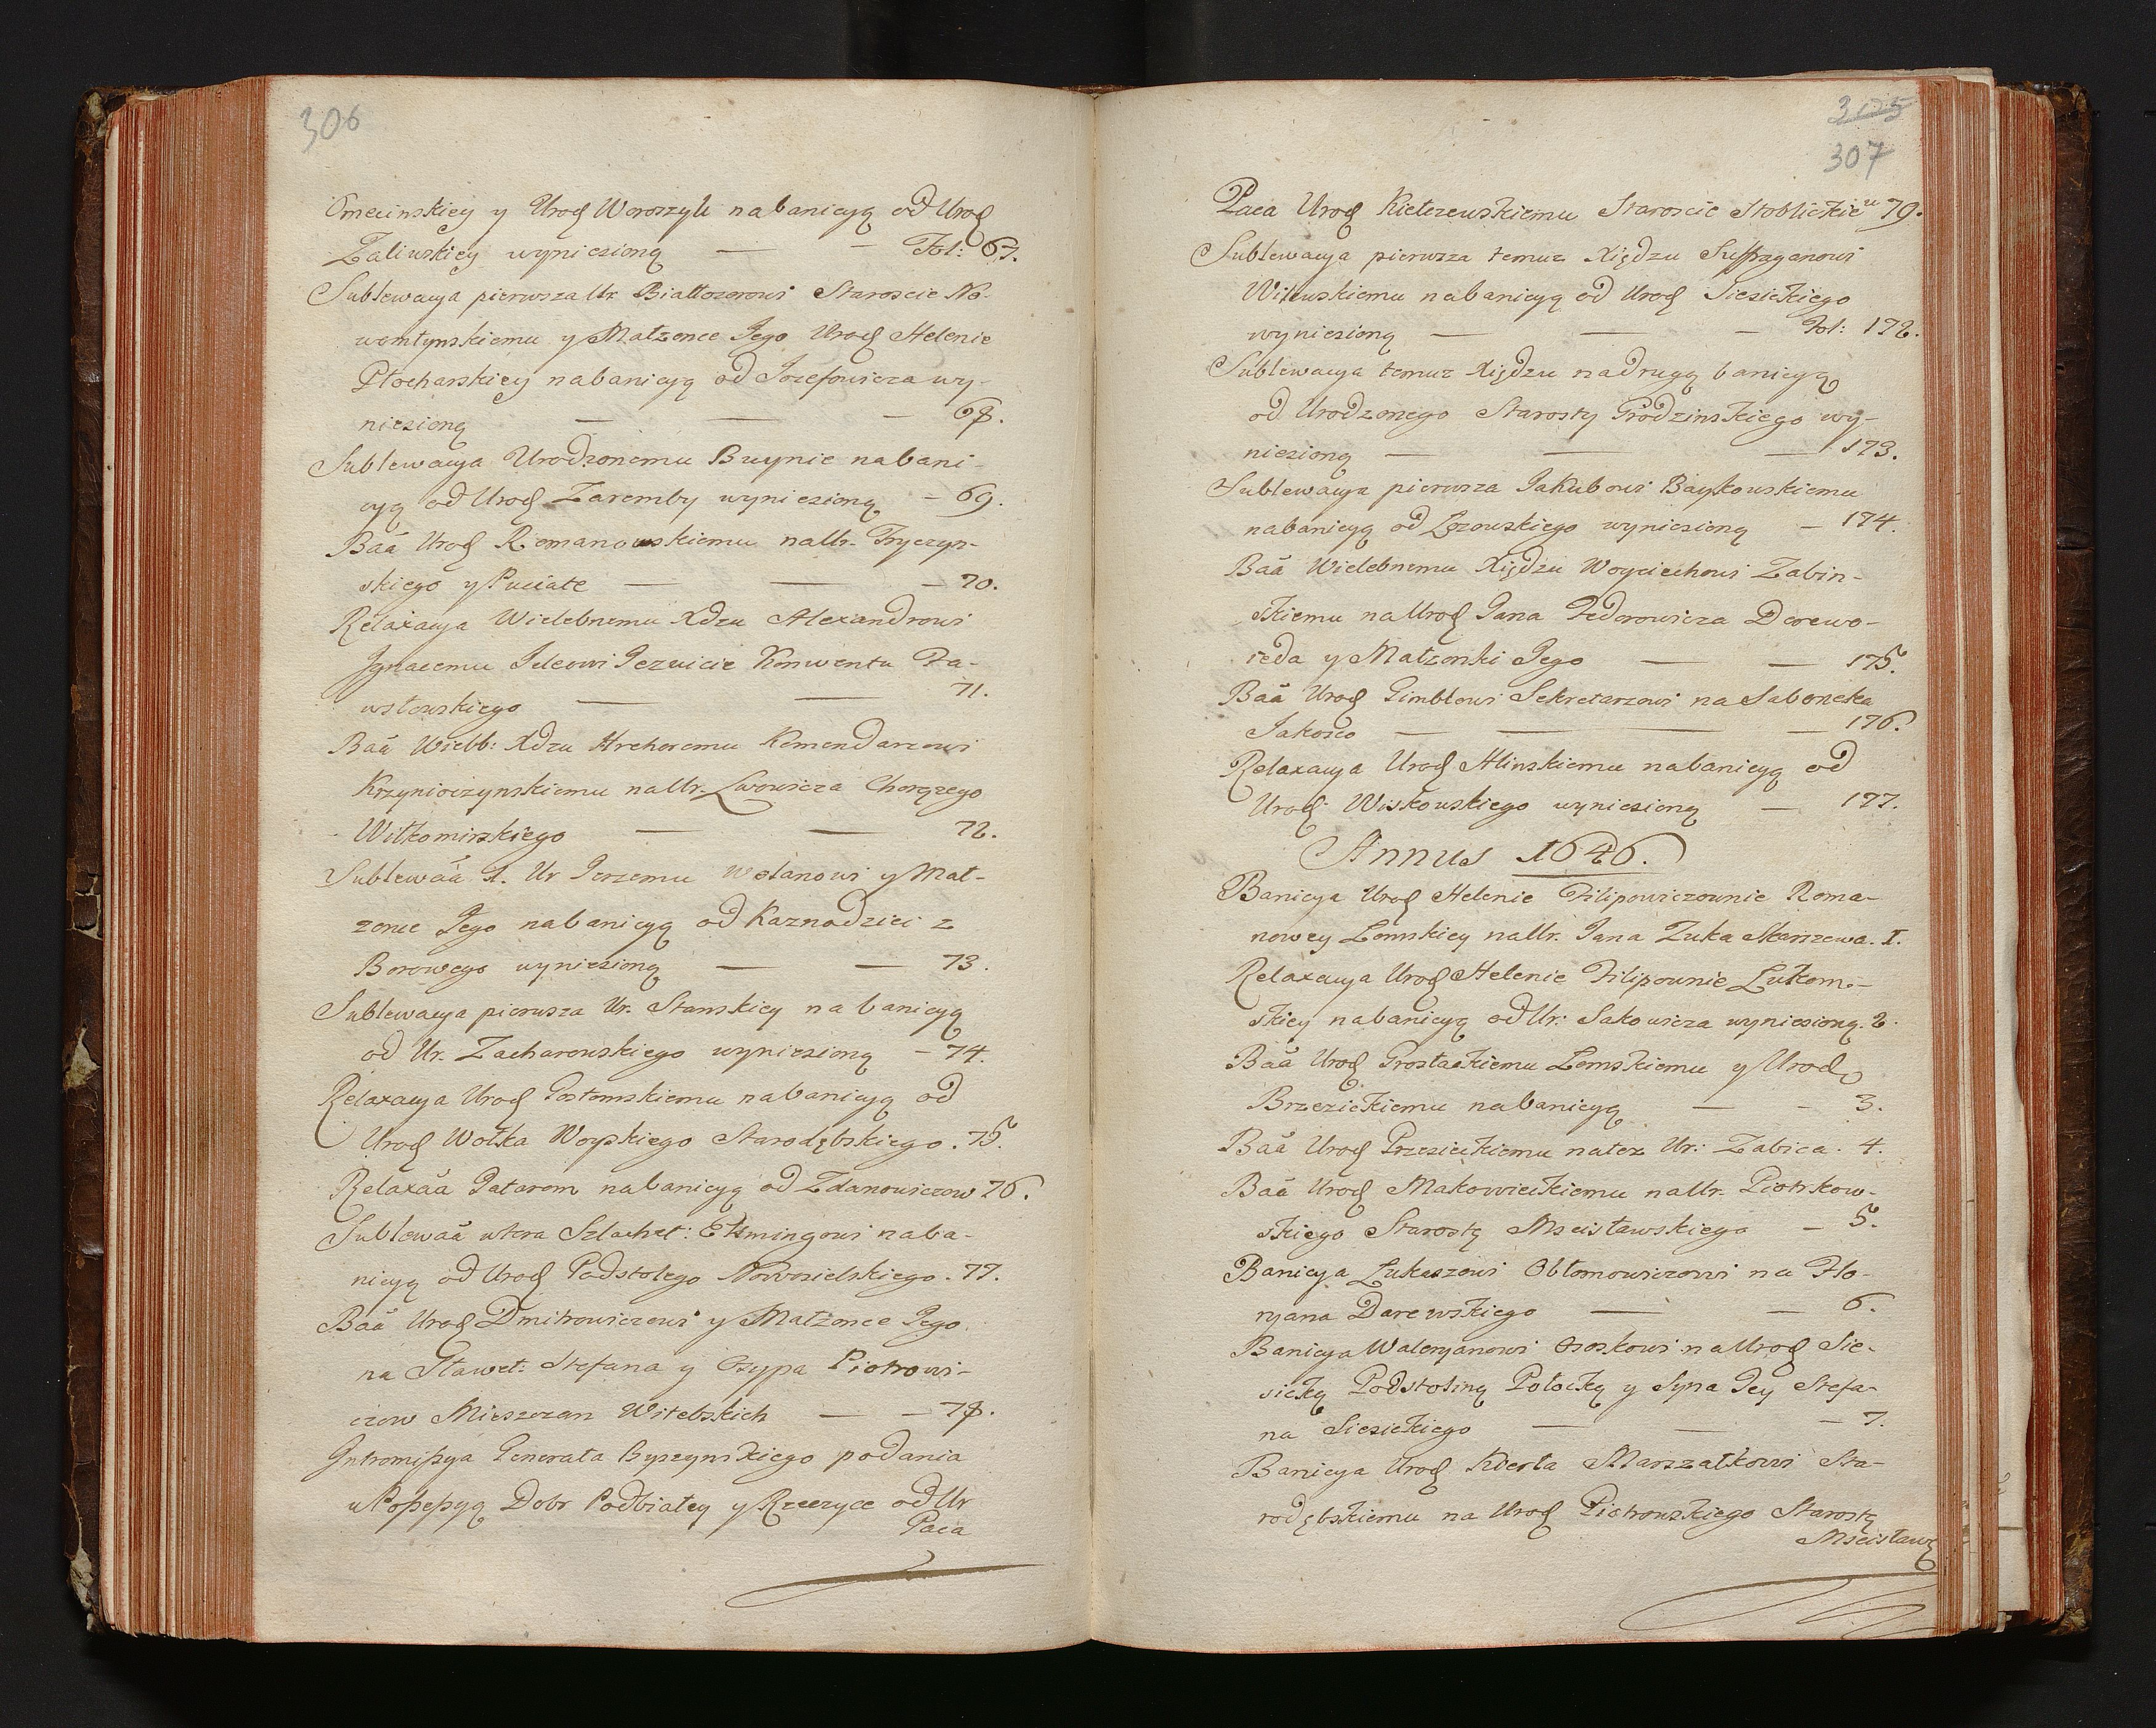 306
Omecinskiey y Urod Woroszyli nabanicyą od Urod
Zaliwskiey wyniesioną — — Fol: 67.
Sublewacya pierwsza Ur. Białłozorowi Staroscie No-
womłynskiemu y Małzonce Jego Urod Helenie
Płocharskiey nabanicyą od Jozefowicza wy-
niesioną — — — 68.
Sublewacya Urodzonemu Buynie nabani-
cyą od Urod Zaremby wyniesioną — 69.
Baã Urod Romanowskiemu na Ur. Tryczyn-
skiego y Puciate — — — 70.
Relaxacya Wielebnemu Xdzu Alexandrowi
Ignacemu Jelcowi Jezuicie Konwentu Ja-
wstowskiego — — 71.
Baã Wielb: Xdzu Hrehoremu Komendarzowi
Krzyniczynskiemu na Ur. Lwowicza Chorązego
Wiłkomirskiego — — 72.
Sublewaã 1. Ur Jerzemu Wolanowi y Mał-
zonce Jego nabanicyą od Kaznodziei z
Borowego wyniesioną — — 73.
Sublewacya pierwsza Ur. Stamskiey na banicyą
od Ur. Zacharowskiego wyniesioną — 74.
Relaxacya Urod Gostomskiemu nabanicyą od
Urod Wołka Woyskiego Starodębskiego. 75.
Relaxaã Tatarom nabanicyą od Zdanowiczow 76.
Sublewaã wtora Szlachet: Etmingowi naba-
nicyą od Urod Podstolego Nowosielskiego. 77.
Baã Urod Dmitrowiczowi y Małzonce Jego
na Sławet: Stefana y Osypa Piotrowi-
czow Mieszczan Witebskich — — 78.
Intromissya Generała Byszynskiego podania
w Possessyą Dobr Podbiałey y Rzeczyce od Ur
Paca
3125
307
Paca Urod Kiełczewskiemu Staroscie Stoblickieu 79.
Sublewacya pierwsza temuz Xiędzu Suffraganowi
Wilenskiemu nabanicyą od Urod Siesickiego
wyniesioną — — — Fol: 172.
Sublewacya temuz Xiędzu nadrugą banicyą
od Urodzonego Starosty Grodzinskiego wy-
niesioną — — — 173.
Sublewacya pierwsza Jakubowi Baykowskiemu
nabanicyą od Łozowskiego wyniesioną — 174.
Baã Wielebnemu Xiędzu Woyciechowi Zabin-
skiemu na Urod Jana Fedorowicza Derewo-
ieda y Małzonki Jego — — 175.
Baã Urod Gimbłowi Sekretarzowi na Saboneka
Jakosco — — — — 176.
Relaxacya Urod Hlinskiemu nabanicyą od
Urod: Woskowskiego wyniesioną — 177.
Annus 1646.
Banicya Urod Helenie Filipowiczownie Roma-
nowey Lomskiey na Ur. Jana Zuka Skarszewa. 1.
Relaxacya Urod Helenie Filipownie Lukom-
skiey nabanicyą od Ur: Sakowicza wyniesioną. 2.
Baã Urod Grosłackiemu Lomskiemu y Urod
Brzezickiemu nabanicyą — — 3.
Baã Urod Przesieckiemu natez Ur: Zabica. 4.
Baã Urod Makowieckiemu na Ur. Piotrkow-
skiego Starostę Mscisławskiego — 5.
Banicya Łukaszowi Obłomowiczowi na Flo-
ryana Darewskiego — — 6.
Banicya Waleryanowi Ososkowi na Urod Sie-
sicką Podstoliną Połocką y Syna Jey Stefa-
na Siesickiego — — — 7.
Banicya Urod Kierła Marszałkowi Sta-
rodębskiemu na Urod Piotrowskiego Starostę
Mscisławs